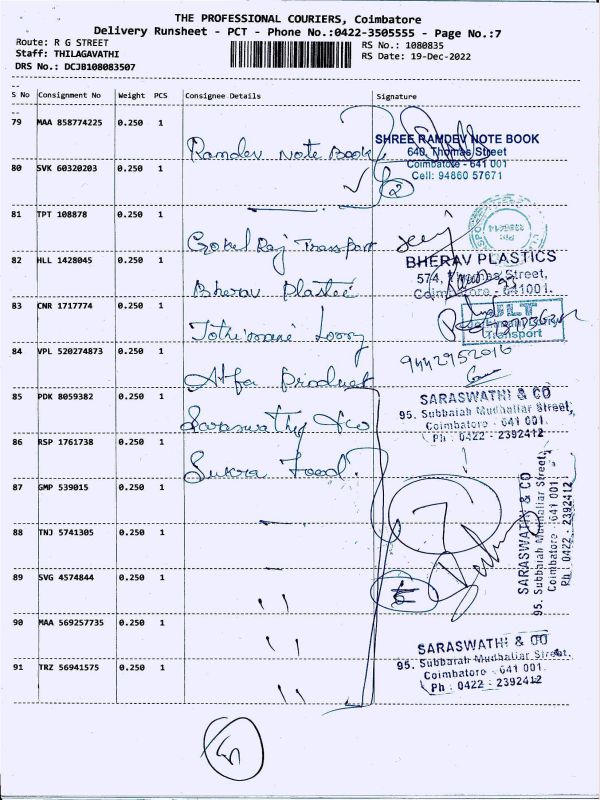 THE PROFESSIONAL COURIERS, Coimbatore
Delivery Runsheet - PCT - Phone No.:0422-3505555 - Page No.:7
Route: R G STREET
Staff: THILAGAVATHI
DRS No.: DCJB108083507
RS No.: 1080835
RS Date: 19-Dec-2022
S No Consignment No Weight PCS Consignee Details Signature
79 MAA 858774225 0.250 1 Ramdev Note Book
SHREE RAMDEV NOTE BOOK
640, Thomas Street
Coimbatore - 641 001
Cell: 94860 57671
80 SVK 60320203 0.250 1
2
81 TPT 108878 0.250 1 Gokul Raj Transport
82 HLL 1428045 0.250 1 Bherav Plastic
BHERAV PLASTICS
574, Thomas Street,
Coimbatore - 641001.
83 CNR 1717774 0.250 1 Jothimani Lorry
Transport
84 VPL 520274873 0.250 1 Alfa Product
9442952016
85 PDK 8059382 0.250 1 Saraswathy & Co
SARASWATHI & CO
95. Subbaiah Mudhaliar Street,
Coimbatore - 641 001.
Ph : 0422 - 2392412
86 RSP 1761738 0.250 1 Sukra Food.
87 GMP 539015 0.250 1
7
SARASWATHI & CO
95. Subbaiah Mudhaliar Street,
Coimbatore - 641 001.
Ph : 0422 - 2392412
88 TNJ 5741305 0.250 1
89 SVG 4574844 0.250 1 "
90 MAA 569257735 0.250 1 "
91 TRZ 56941575 0.250 1 "
SARASWATHI & CO
95. Subbaiah Mudhaliar Street.
Coimbatore - 641 001.
Ph : 0422 - 2392412